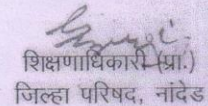 शिक्षणाधिकारी (प्रा.)
जिल्हा परिषद, नांदेड